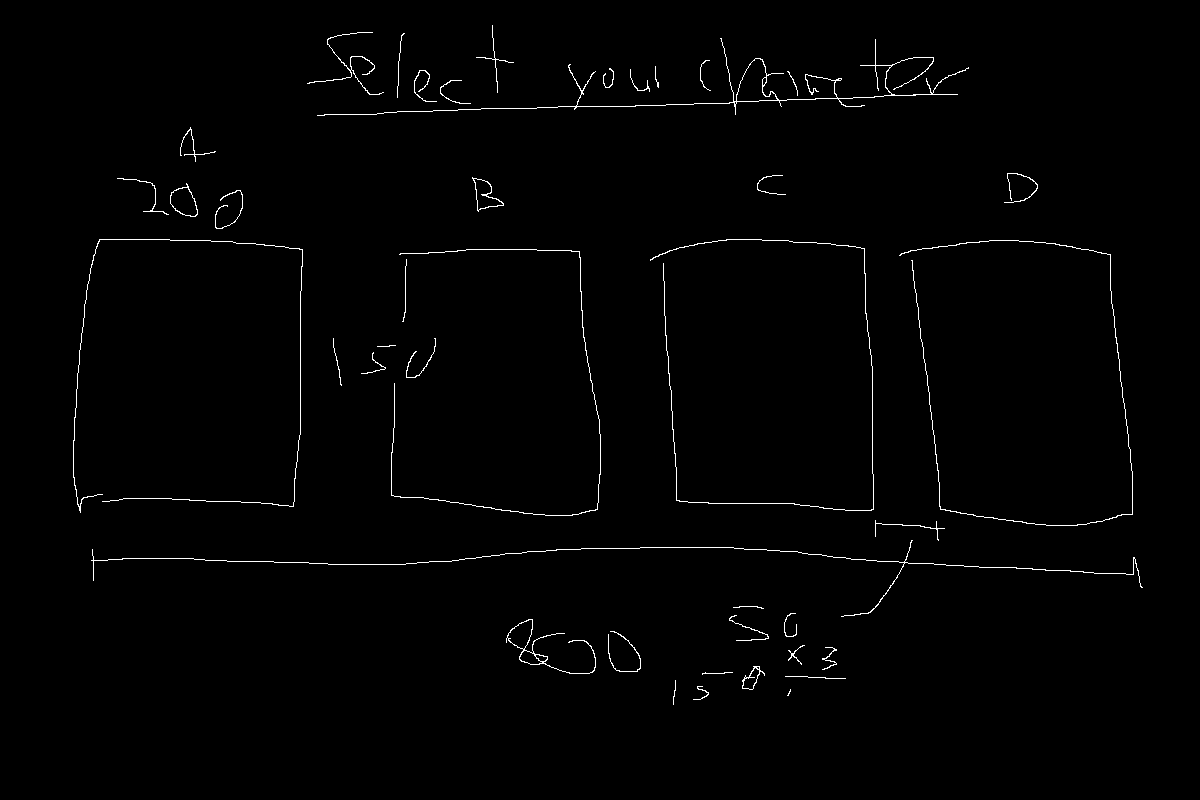 Select your character
A
200
B
C
D
150
800
50
x 3
150